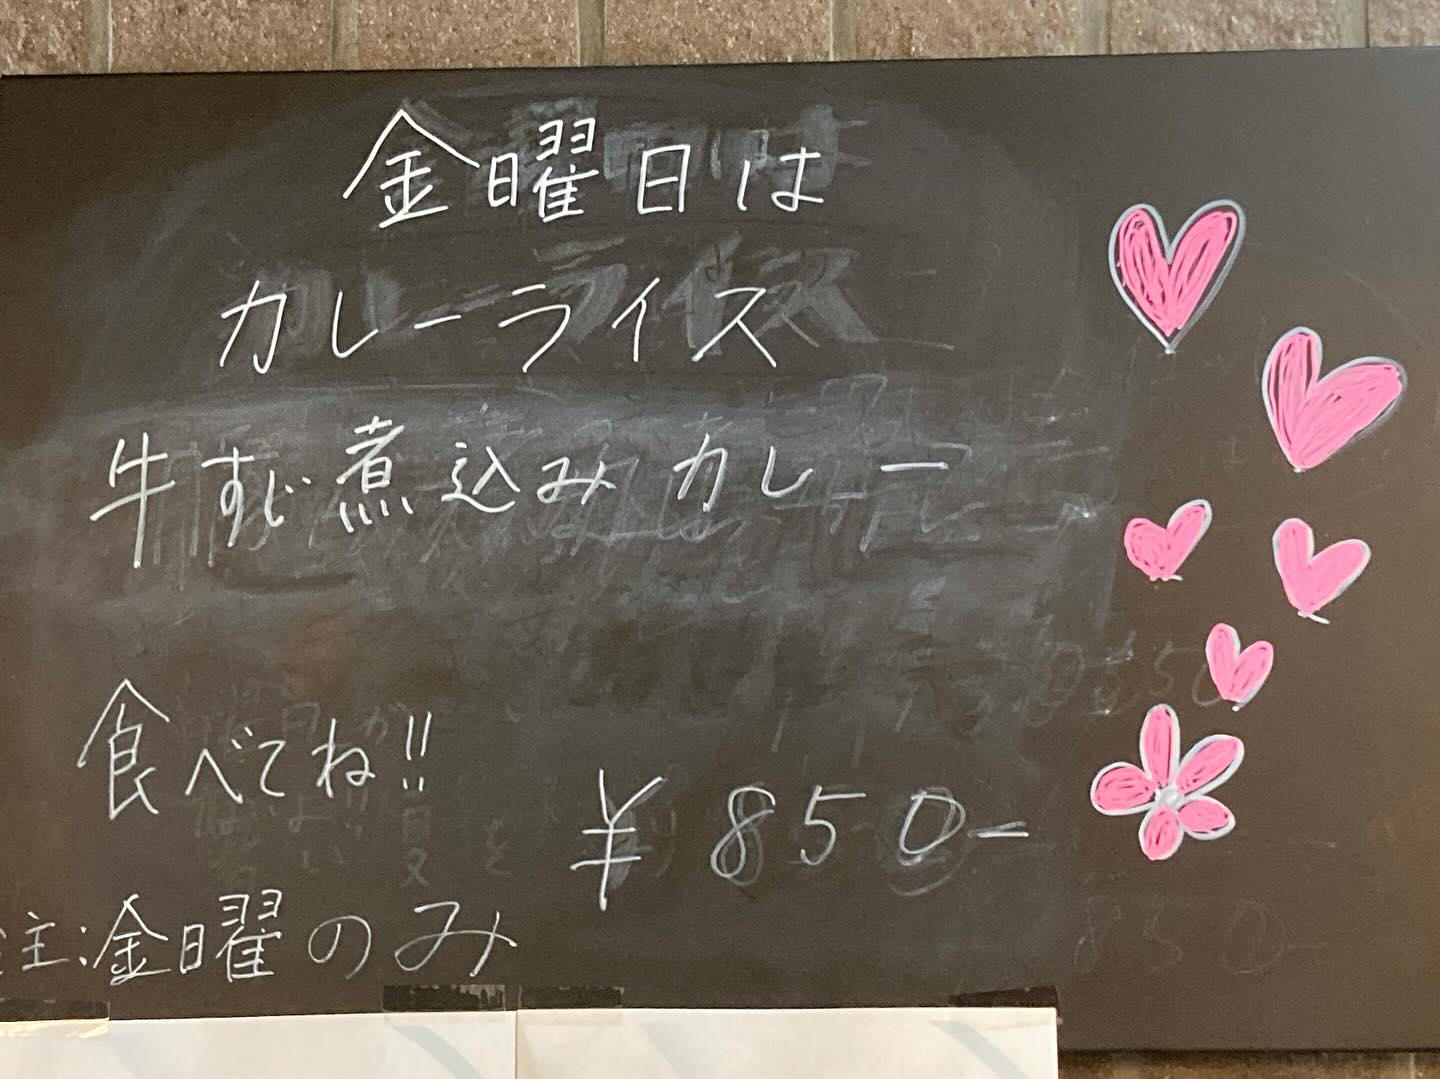 金曜日は
カレーライス
牛すじ煮込みカレー
食べてね!!
¥850-
注:金曜のみ